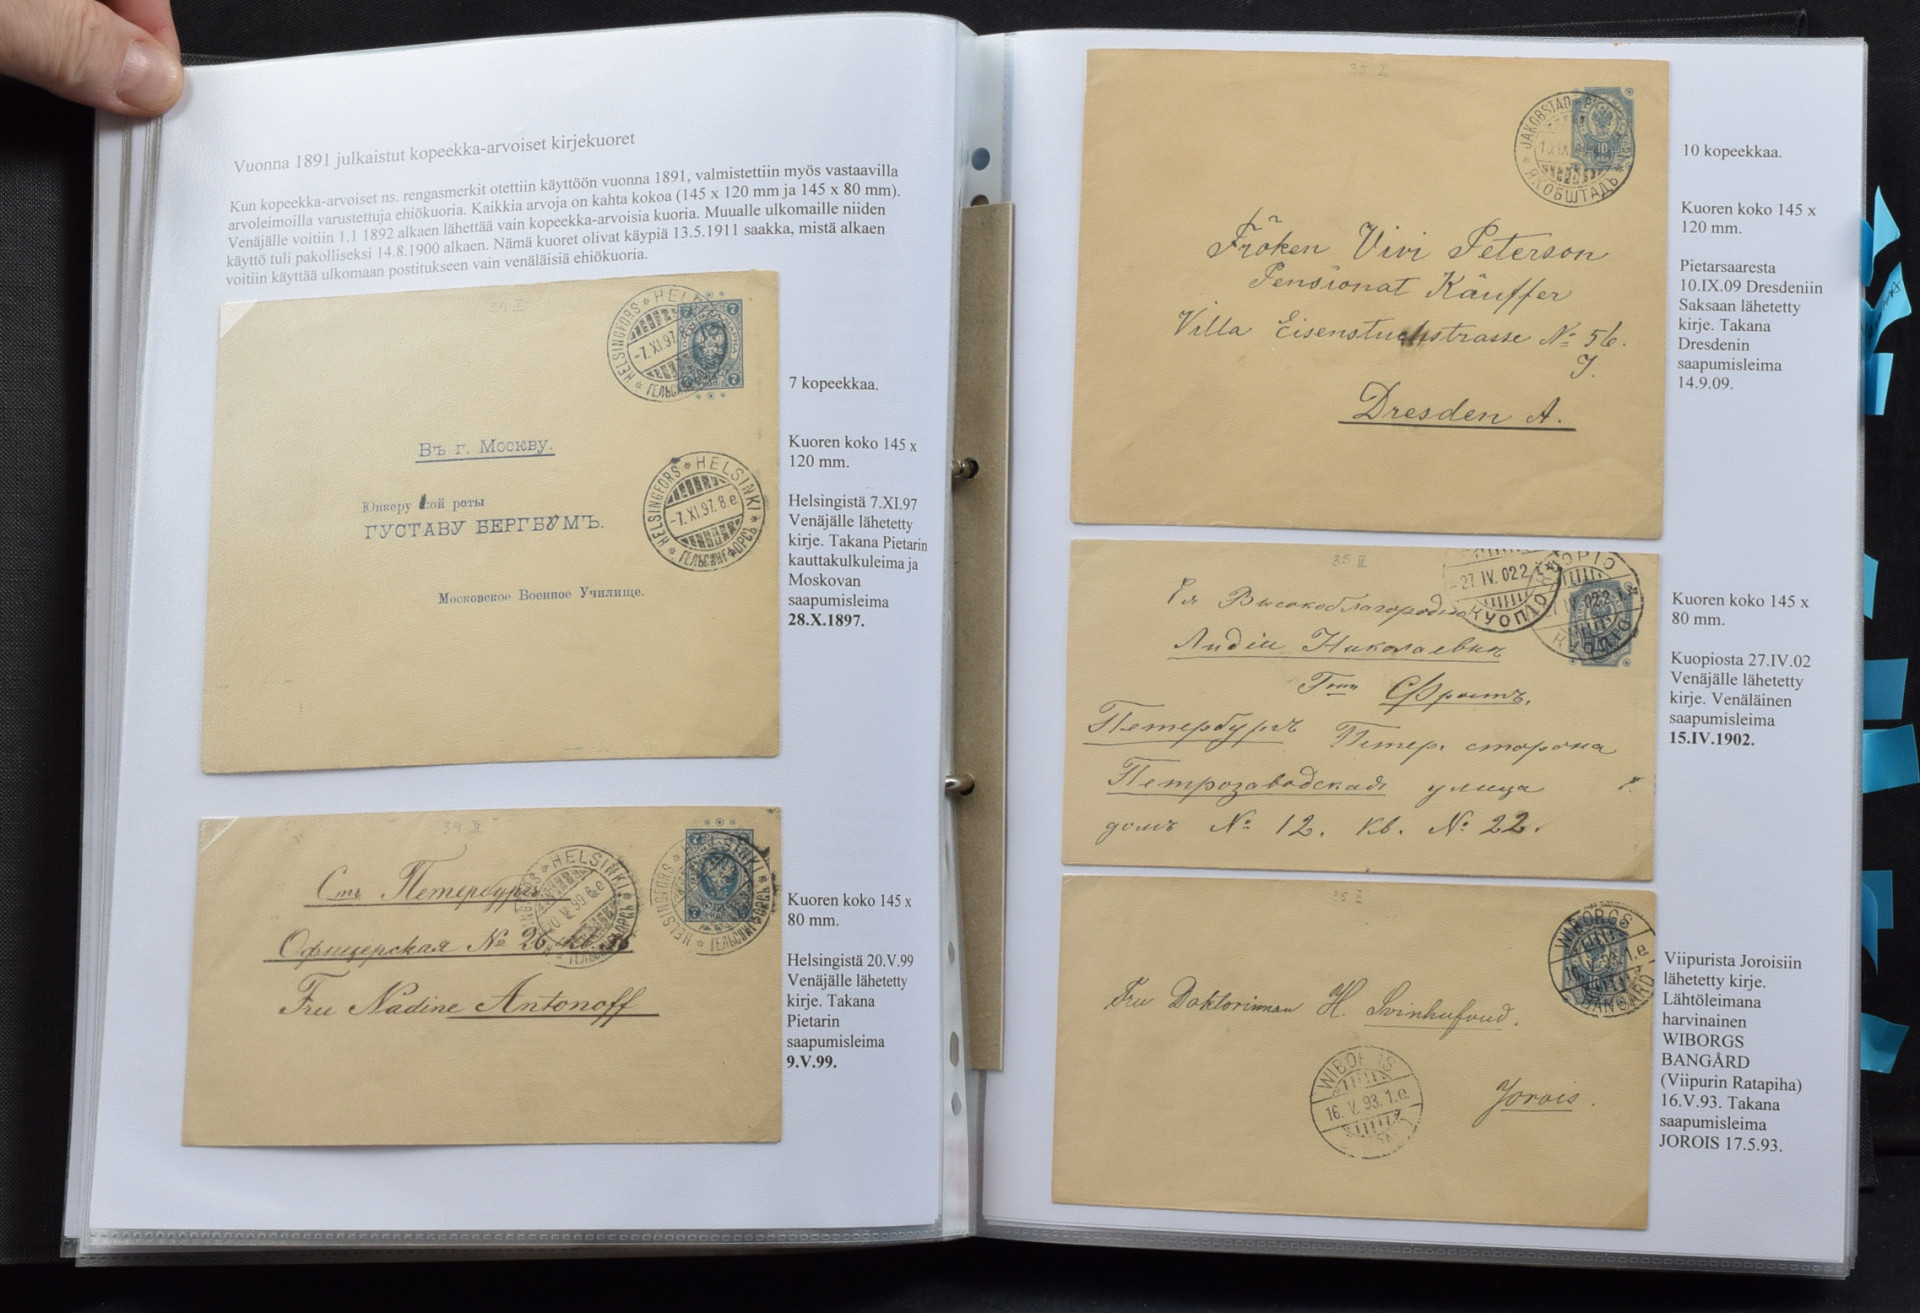 Vuonna 1891 julkaistut kopeekka-arvoiset kirjekuoret
Kun kopeekka-arvoiset ns. rengasmerkit otettiin käyttöön vuonna 1891, valmistettiin myös vastaavilla
arvoleimoilla varustettuja ehiökuoria. Kaikkia arvoja on kahta kokoa (145 x 120 mm ja 145 x 80 mm).
Venäjälle voitiin 1.1 1892 alkaen lähettää vain kopeekka-arvoisia kuoria. Muualle ulkomaille niiden
käyttö tuli pakolliseksi 14.8.1900 alkaen. Nämä kuoret olivat käypiä 13.5.1911 saakka, mistä alkaen
voitiin käyttää ulkomaan postitukseen vain venäläisiä ehiökuoria.
HELSINGFORS
-7.XI.97.
7
Въ г. Москву.
Юнкеру кой роты
ГУСТАВУ БЕРГБУМЪ.
Московское Военное Училище.
HELSINGFORS * HELSINKI
-7.XI.97. 8 e
ГЕЛЬСИНГФОРСЪ
7 kopeekkaa.
Kuoren koko 145 x
120 mm.
Helsingistä 7.XI.97
Venäjälle lähetetty
kirje. Takana Pietarin
kauttakulkuleima ja
Moskovan
saapumisleima
28.X.1897.
Петербургъ
HELSINKI
Офицерская № 26
Fru Nadine Antonoff
HELSINGFORS
Kuoren koko 145 x
80 mm.
Helsingistä 20.V.99
Venäjälle lähetetty
kirje. Takana
Pietarin
saapumisleima
9.V.99.
JAKOBSTAD
10
ЯКОБШТАДЪ
Fröken Vivi Peterson
Pensionat Käuffer
Villa Eisenstuckstrasse № 56.
I.
Dresden A.
10 kopeekkaa.
Kuoren koko 145 x
120 mm.
Pietarsaaresta
10.IX.09 Dresdeniin
Saksaan lähetetty
kirje. Takana
Dresdenin
saapumisleima
14.9.09.
35 II
27 IV. 02 2
КУОПІО
KUOPIO
Ея Высокоблагородію
Лидіи Николаевнѣ
Петербургъ Петер. сторона
Петрозаводская улица
домъ № 12. кв. № 22.
Kuoren koko 145 x
80 mm.
Kuopiosta 27.IV.02
Venäjälle lähetetty
kirje. Venäläinen
saapumisleima
15.IV.1902.
WIBORGS
BANGÅRD
Fru Doktorinnan H. Svinhufvud.
16. V. 93. 1.e.
Jorois.
Viipurista Joroisiin
lähetetty kirje.
Lähtöleimana
harvinainen
WIBORGS
BANGÅRD
(Viipurin Ratapiha)
16.V.93. Takana
saapumisleima
JOROIS 17.5.93.